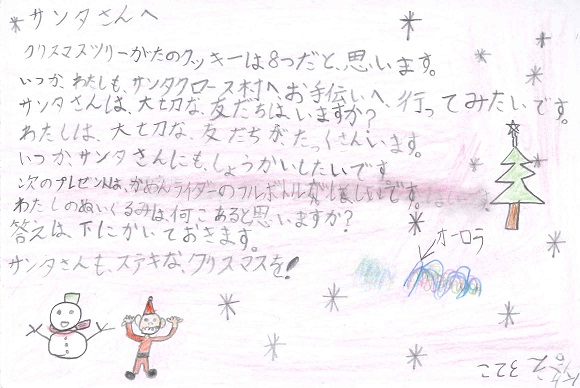 サンタさんへ
クリスマスツリーがたのクッキーは8つだと、思います。
いつか、わたしも、サンタクロース村へ、お手伝いへ、行ってみたいです。
サンタさんは、大切な、友だちは、いますか?
わたしは、大切な、友だちが、たっくさん、います。
いつか、サンタさんにも、しょうかいしたいです
次のプレゼントは、かめんライダーのフルボトルがほしいです。
わたしのぬいぐるみは、何こあると思いますか?
答えは、下にかいておきます。
サンタさんも、ステキな、クリスマスを!
オーロラ
322こ